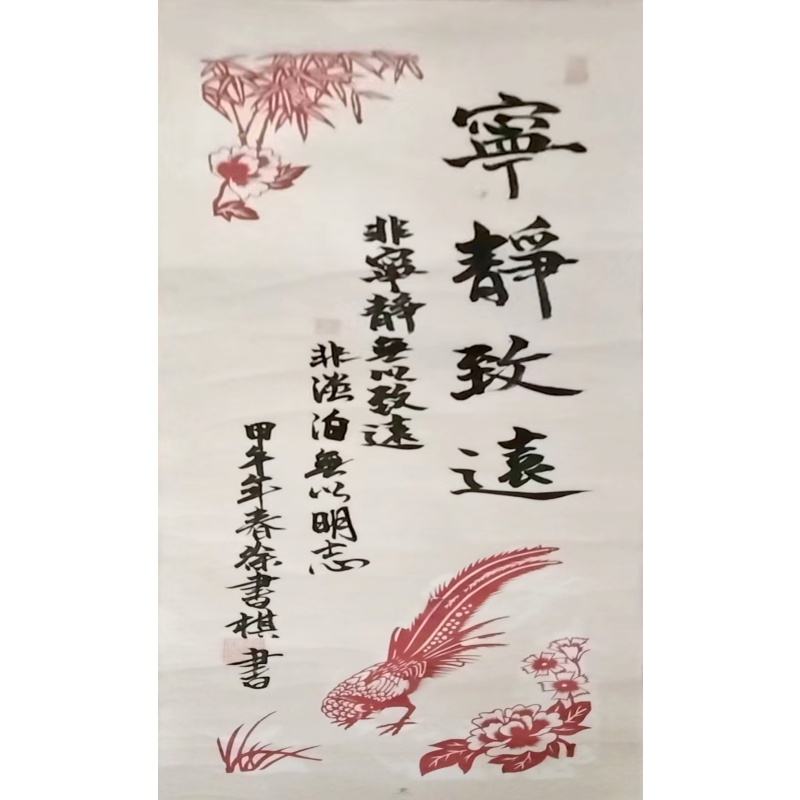 寧靜致遠
非寧靜無以致遠
非澹泊無以明志
甲午年春徐書棋書